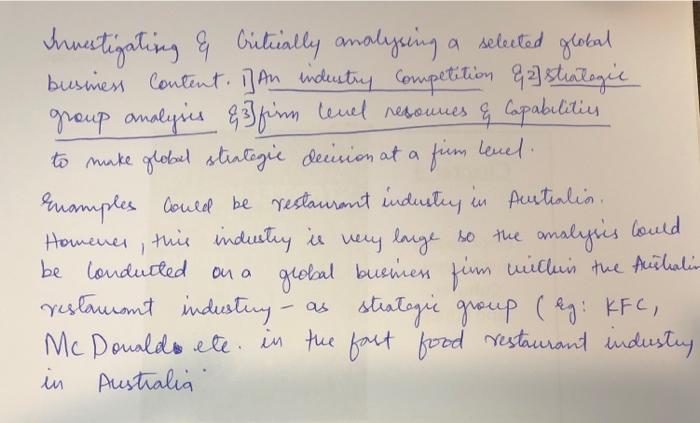 Investigating & Critically analysing a selected global
business Content. 1] An industry Competition & 2] strategic
group analysis & 3] firm level resources & Capabilities
to make global strategic decision at a firm level.
Examples Could be restaurant industry in Australia.
However, this industry is very large so the analysis Could
be Conducted on a global business firm within the Australian
restaurant industry - as strategic group (eg: KFC,
McDonalds etc. in the fast food restaurant industry
in Australia